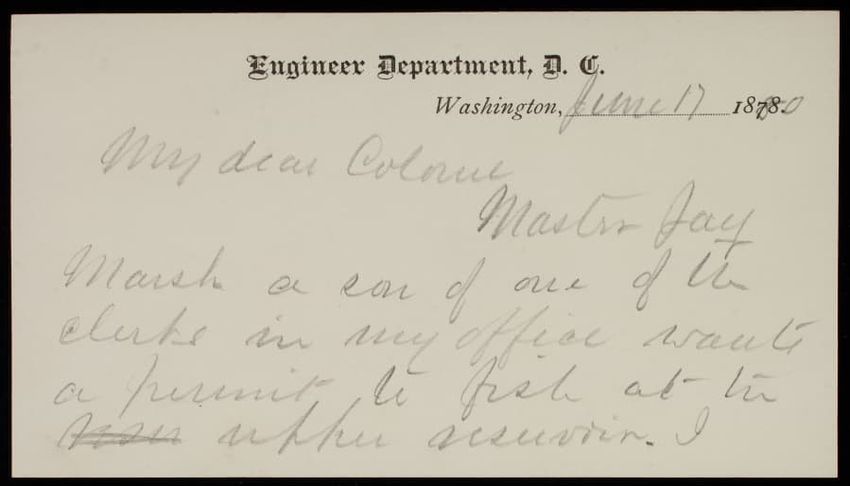 Engineer Department, D. C.
Washington, June 17 1880
My dear Colonel
Master Jay
Marsh a son of one of the
clerks in my office wants
a permit to fish at the
upper reservoir. I